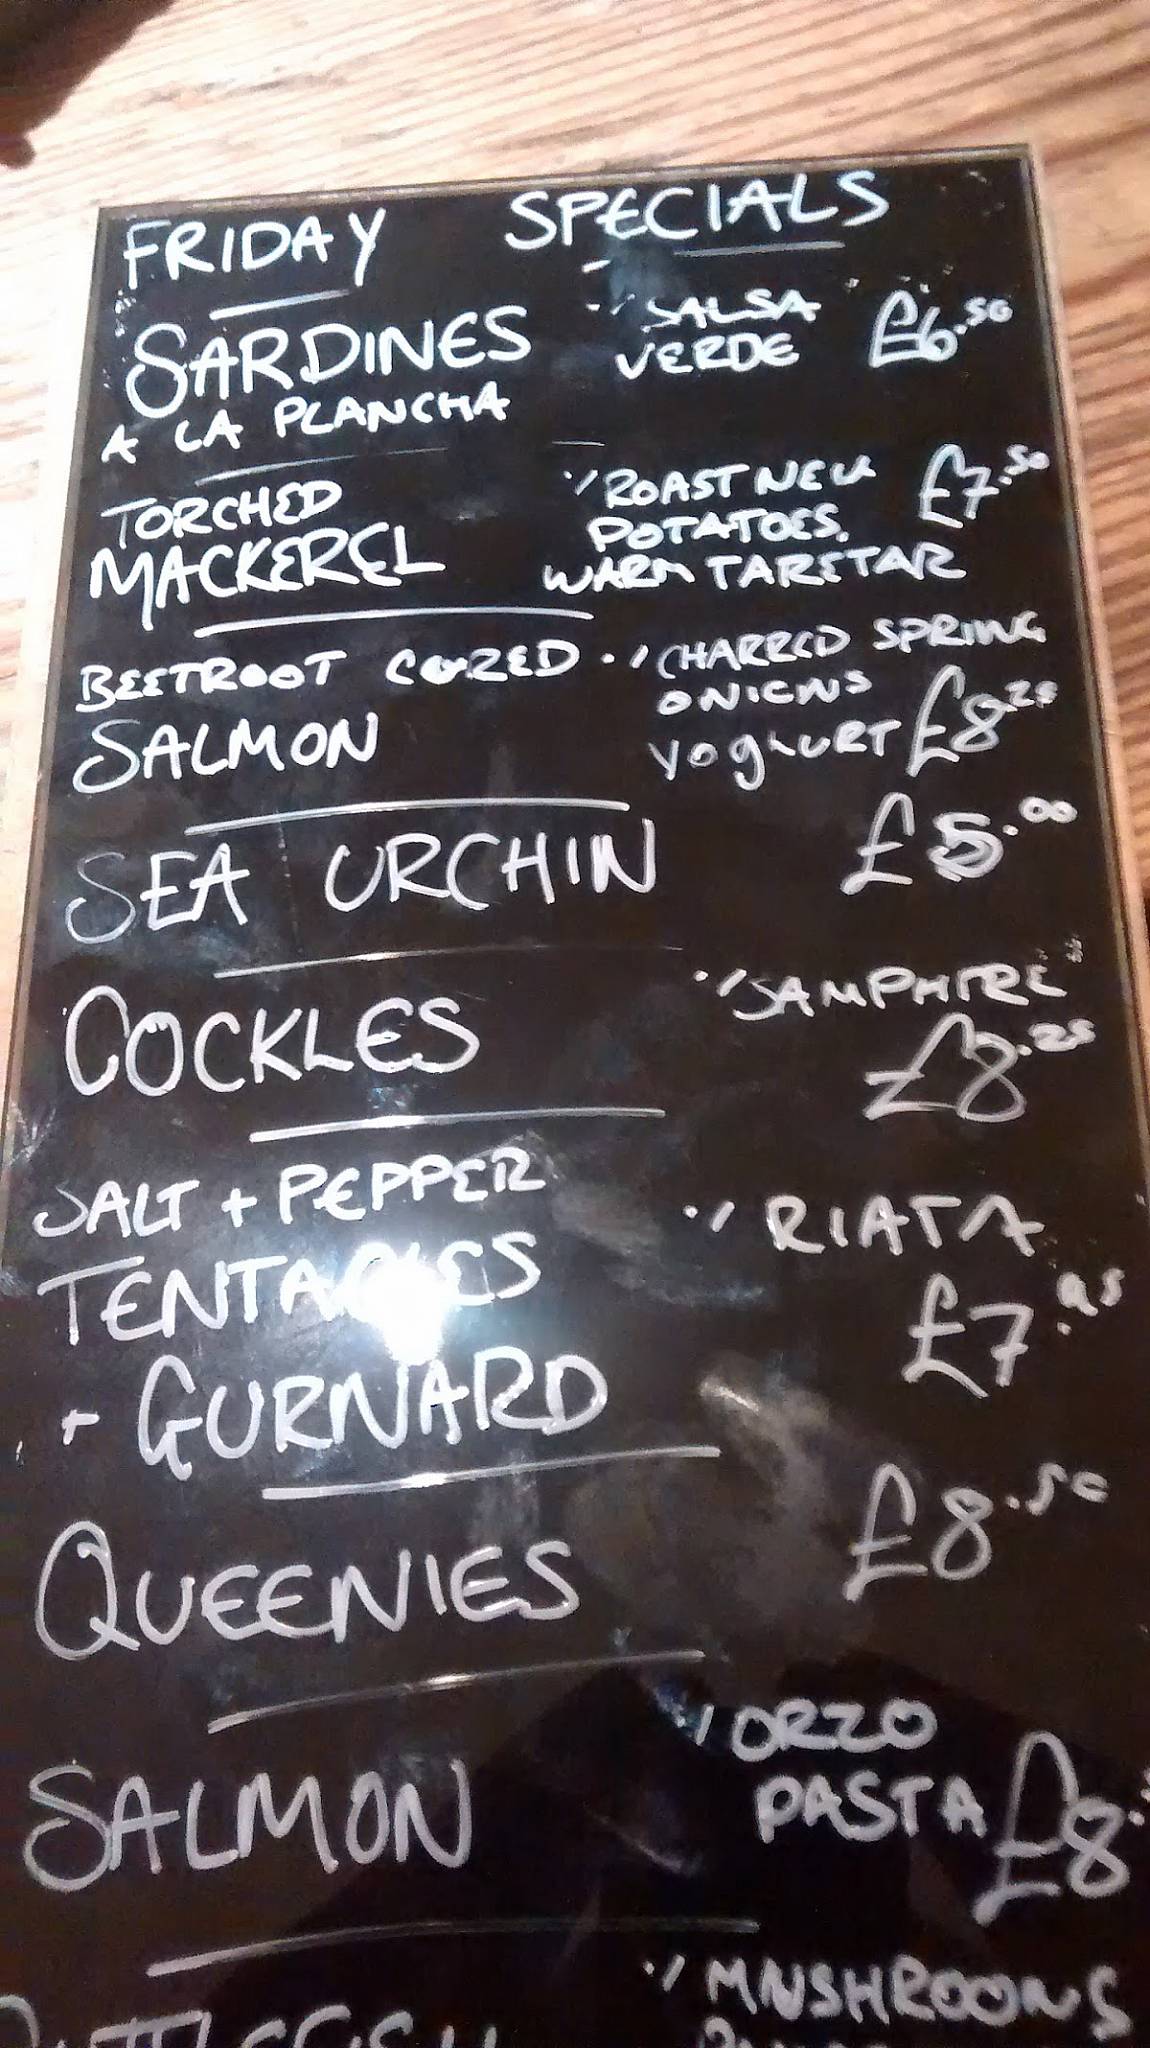 FRIDAY SPECIALS
SARDINES "/ SALSA £6.50
A LA PLANCHA VERDE
TORCHED "/ ROAST NEW £7.50
MACKEREL POTATOES.
WARM TARETAR
BEETROOT CURED "/ CHARRED SPRING
SALMON ONIONS
YOGHURT £8.25
SEA URCHIN £5.00
COCKLES "/ SAMPHIRE
£8.25
SALT + PEPPER "/ RIATA
TENTACLES £7.95
+ GURNARD
QUEENIES £8.50
SALMON "/ ORZO
PASTA £8.
CUTTLEFISH "/ MNSHROOMS